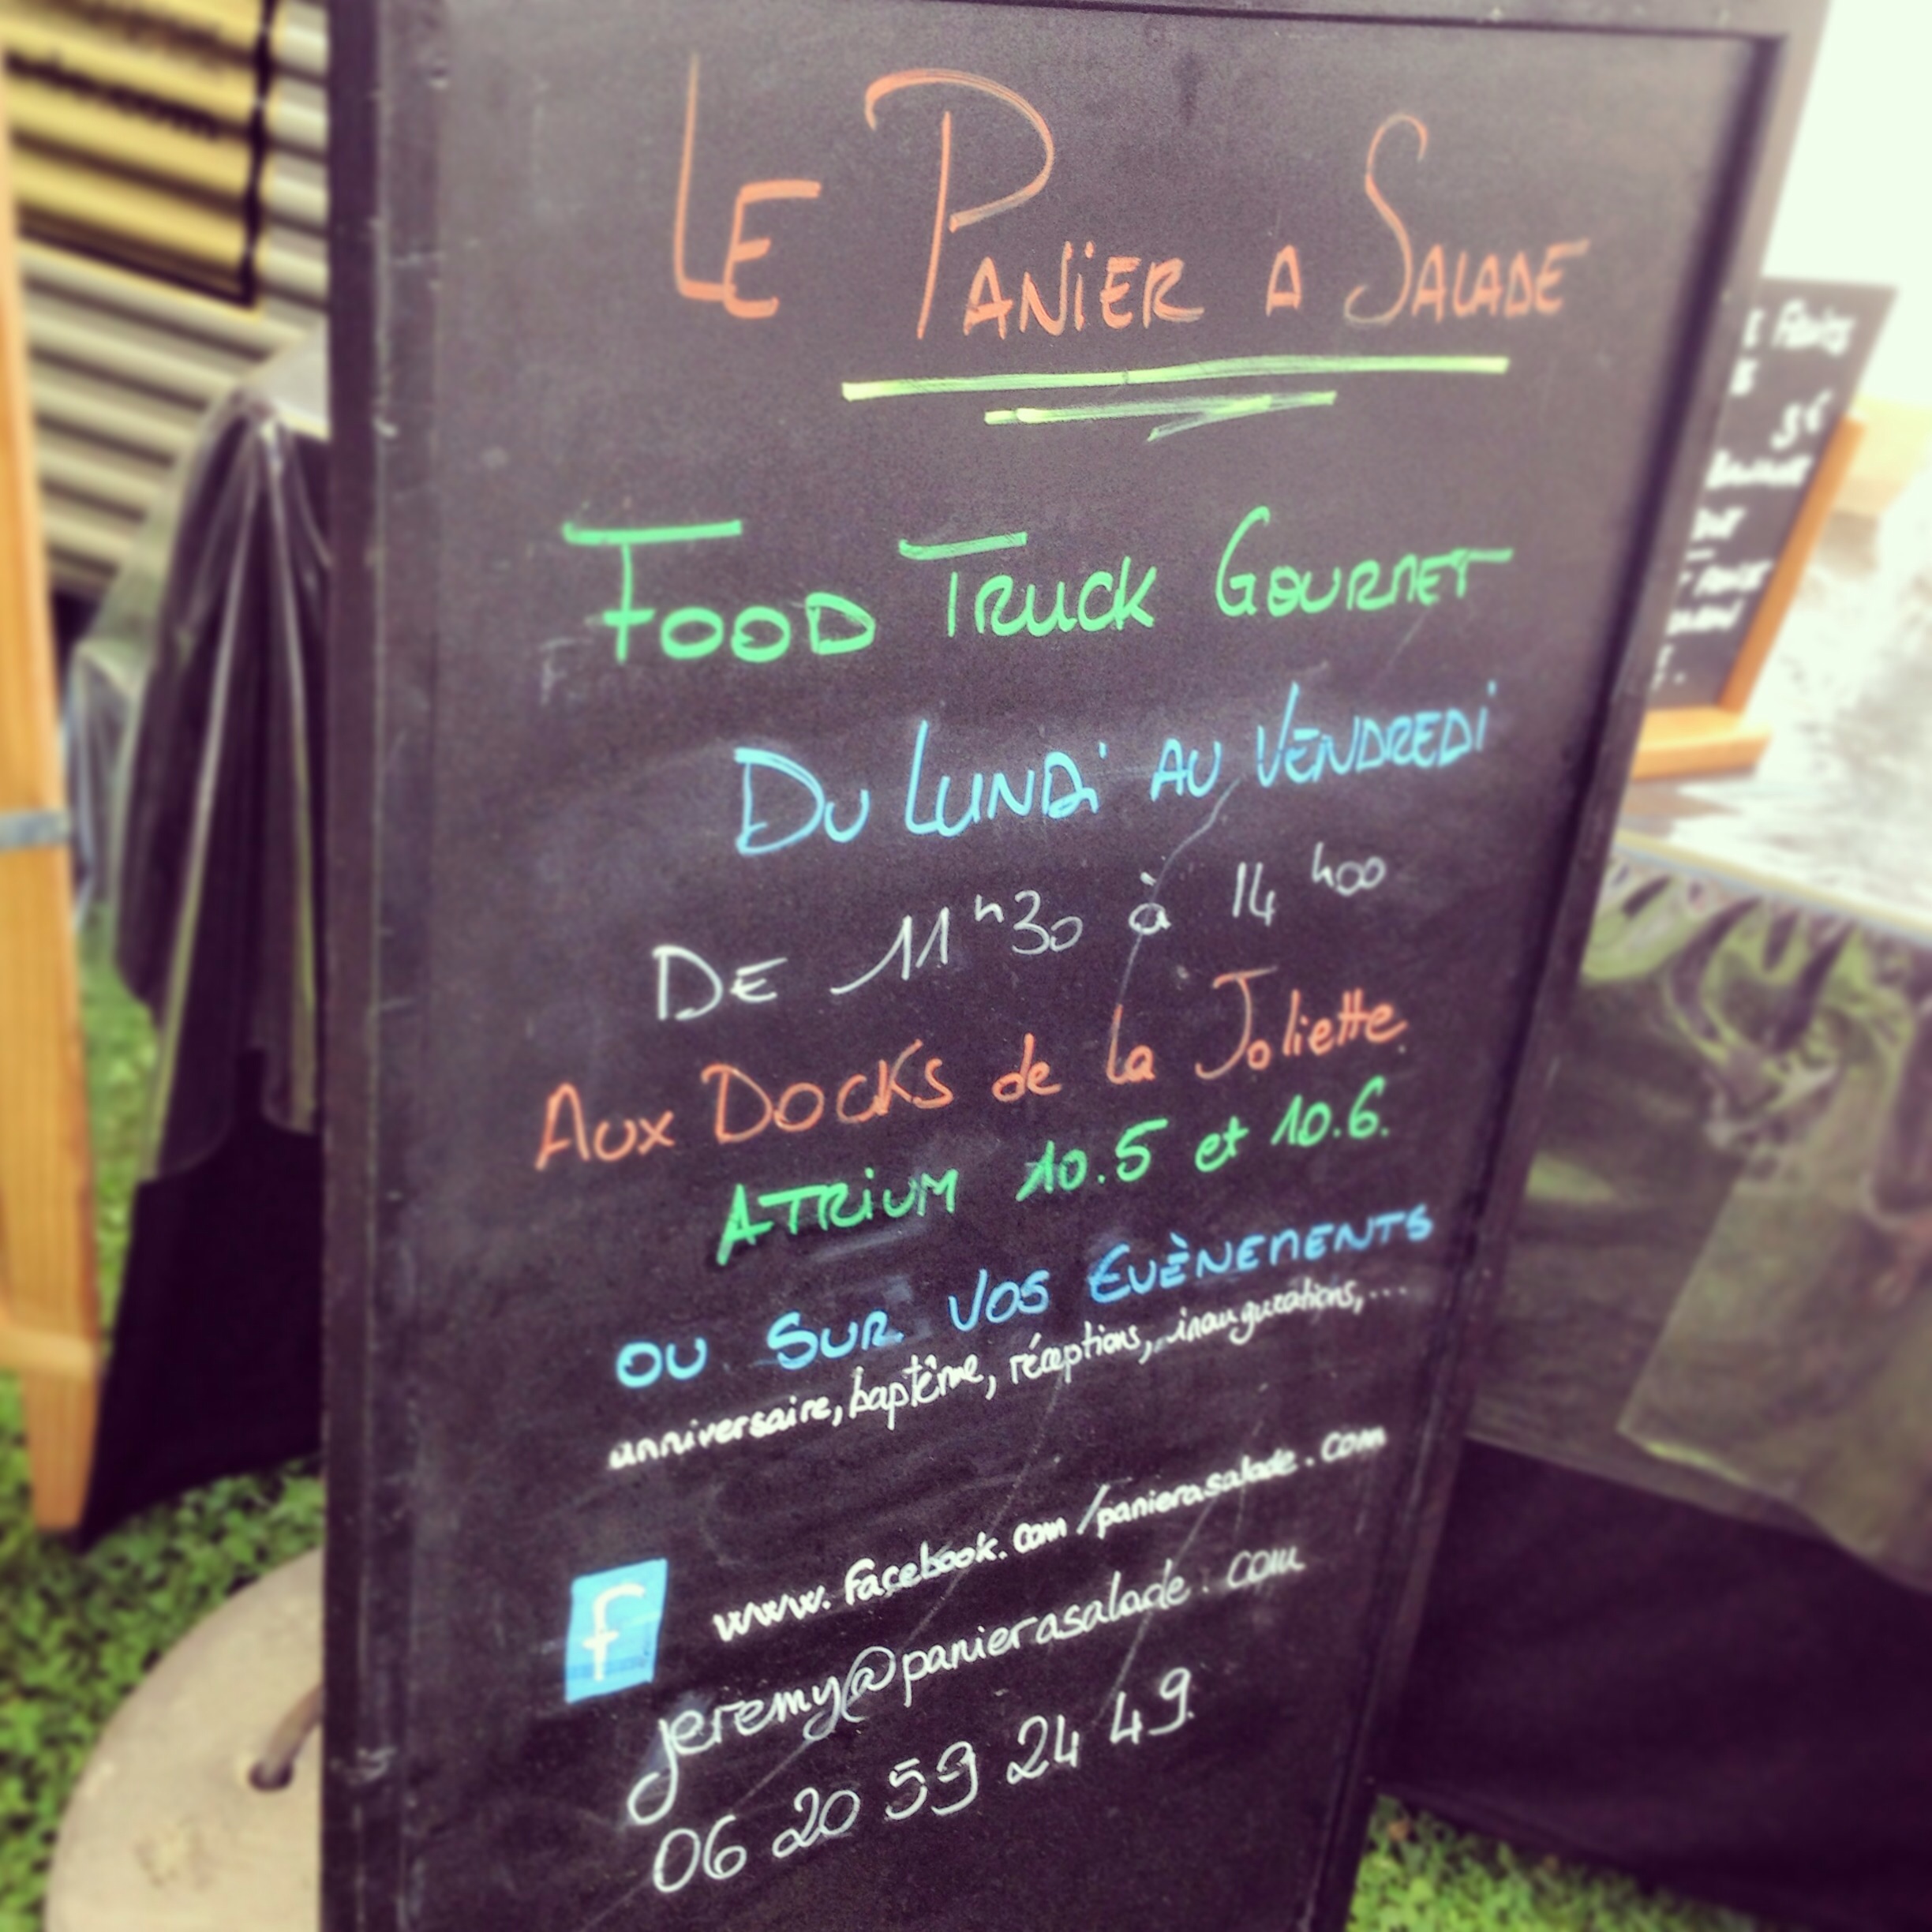 LE PANiER A SALADE
FOOD TRUCK GOURMET
DU LUNDi AU VENDREDi
DE 11h30 à 14h00
AUX DOCKS de la Joliette
ATRiUM 10.5 et 10.6.
OU SUR VOS EVÈNEMENTS
anniversaire, baptême, réceptions, inaugurations,...
f www.facebook.com/panierasalade.com
jeremy@panierasalade.com
06 20 59 24 49.
3€